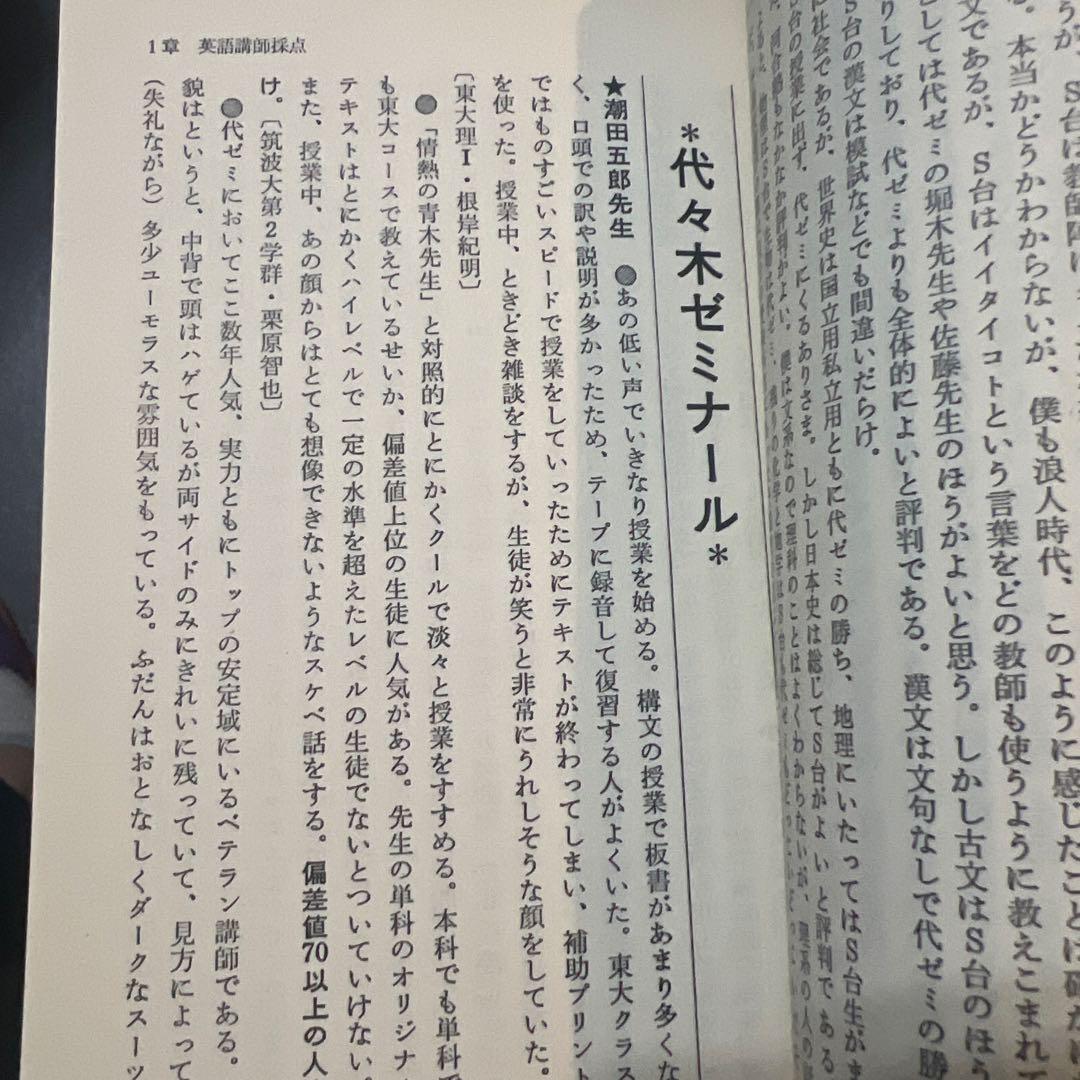 うが、S台は教師陣に
る。本当かどうかわからないが、僕も浪人時代、このように感じたことは確か
文であるが、S台はイイタイコトという言葉をどの教師も使うように教えこまれて
としては代ゼミの堀木先生や佐藤先生のほうがよいと思う。しかし古文はS台のほう
りしており、代ゼミよりも全体的によいと評判である。漢文は文句なしで代ゼミの勝
S台の漢文は模試などでも間違いだらけ。
に社会であるが、世界史は国立用私立用ともに代ゼミの勝ち、地理にいたってはS台生がま
S台の授業に出ず、代ゼミにくるありさま。しかし日本史は総じてS台がよいと評判である
なかなか評判がよい。僕は文系なので理科のことはよくわからないが、理系の人の
1章 英語講師採点
*代々木ゼミナール*
★潮田五郎先生 ●あの低い声でいきなり授業を始める。構文の授業で板書があまり多くな
く、口頭での訳や説明が多かったため、テープに録音して復習する人がよくいた。東大クラス
ではものすごいスピードで授業をしていったためにテキストが終わってしまい、補助プリント
を使った。授業中、ときどき雑談をするが、生徒が笑うと非常にうれしそうな顔をしていた。
〔東大理Ⅰ・根岸紀明〕
●「情熱の青木先生」と対照的にとにかくクールで淡々と授業をすすめる。本科でも単科で
も東大コースで教えているせいか、偏差値上位の生徒に人気がある。先生の単科のオリジナ
テキストはとにかくハイレベルで一定の水準を超えたレベルの生徒でないとついていけない。
また、授業中、あの顔からはとても想像できないようなスケベ話をする。偏差値70以上の人
け。〔筑波大第2学群・栗原智也〕
●代ゼミにおいてここ数年人気、実力ともにトップの安定域にいるベテラン講師である。
貌はというと、中背で頭はハゲているが両サイドのみにきれいに残っていて、見方によって
(失礼ながら)多少ユーモラスな雰囲気をもっている。ふだんはおとなしくダークなスーツ